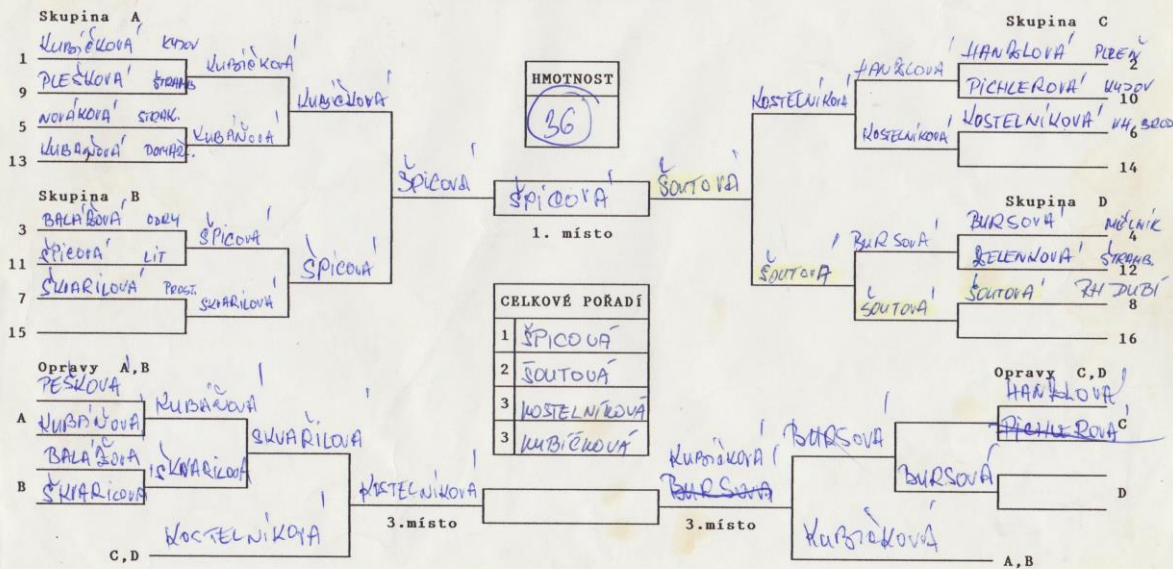 Skupina A
1 KUBÍČKOVÁ KYJOV
9 PLEŠKOVÁ ŠTRAMB.
5 NOVÁKOVÁ STRAK.
13 KUBÁŇOVÁ DOMAŽ.
KUBÍČKOVÁ
KUBÁŇOVÁ
KUBÍČKOVÁ
Skupina B
3 BALÁŽOVÁ ODRY
11 ŠPICOVÁ LIT
7 ŠKVAŘILOVÁ PROST.
15
ŠPICOVÁ
ŠKVAŘILOVÁ
ŠPICOVÁ
ŠPICOVÁ
HMOTNOST
36
ŠPICOVÁ
1. místo
ŠOUTOVÁ
Skupina C
HANŽLOVÁ PLZEŇ 2
PICHLEROVÁ KYJOV 10
KOSTELNÍKOVÁ UH. BROD 6
14
HANŽLOVÁ
KOSTELNÍKOVÁ
KOSTELNÍKOVÁ
Skupina D
BURSOVÁ MĚLNÍK 4
ZELENKOVÁ ŠTRAMB. 12
ŠOUTOVÁ RH DUBÍ 8
16
BURSOVÁ
ŠOUTOVÁ
ŠOUTOVÁ
CELKOVÉ POŘADÍ
1 ŠPICOVÁ
2 ŠOUTOVÁ
3 KOSTELNÍKOVÁ
3 KUBÍČKOVÁ
Opravy A,B
PEŠKOVA
A KUBÁŇOVÁ
BALÁŽOVÁ
B ŠKVAŘILOVÁ
KUBÁŇOVÁ
ŠKVAŘILOVÁ
SKVAŘILOVÁ
C,D KOSTELNÍKOVÁ
KOSTELNÍKOVÁ
3.místo
Opravy C,D
HANŽLOVÁ
PICHLEROVÁ C
D
BURSOVÁ
BURSOVÁ
KUBÍČKOVÁ
BURSOVÁ
3.místo
KUBÍČKOVÁ
A,B